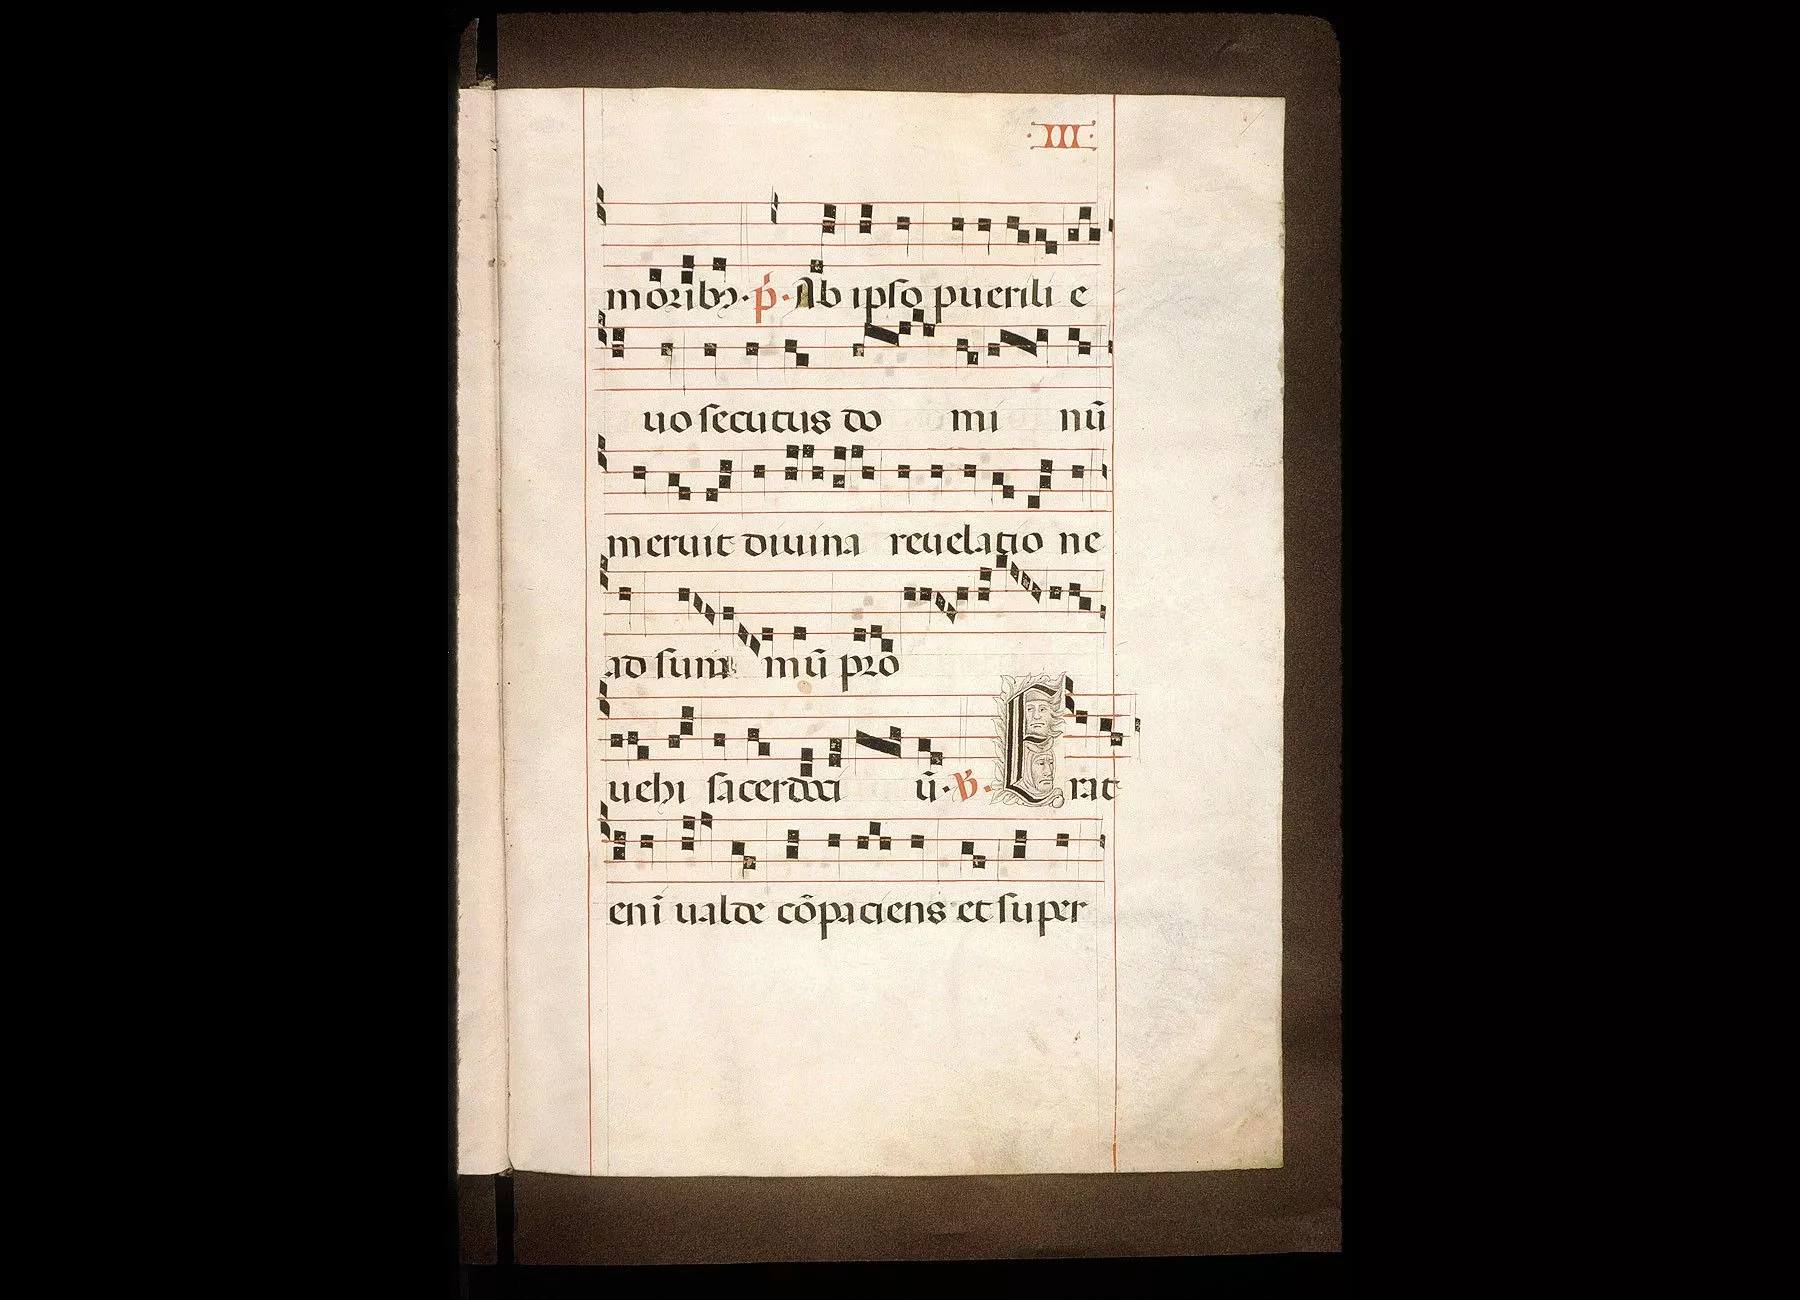 ·III·
moribꝫ· p̄· Ab ipso puerili e
uo secutus do mi nū
meruit diuina reuelatio ne
ad sum mū pro
uehi sacerdoci ū· V̄· Erat
enī ualde cōpaciens et super